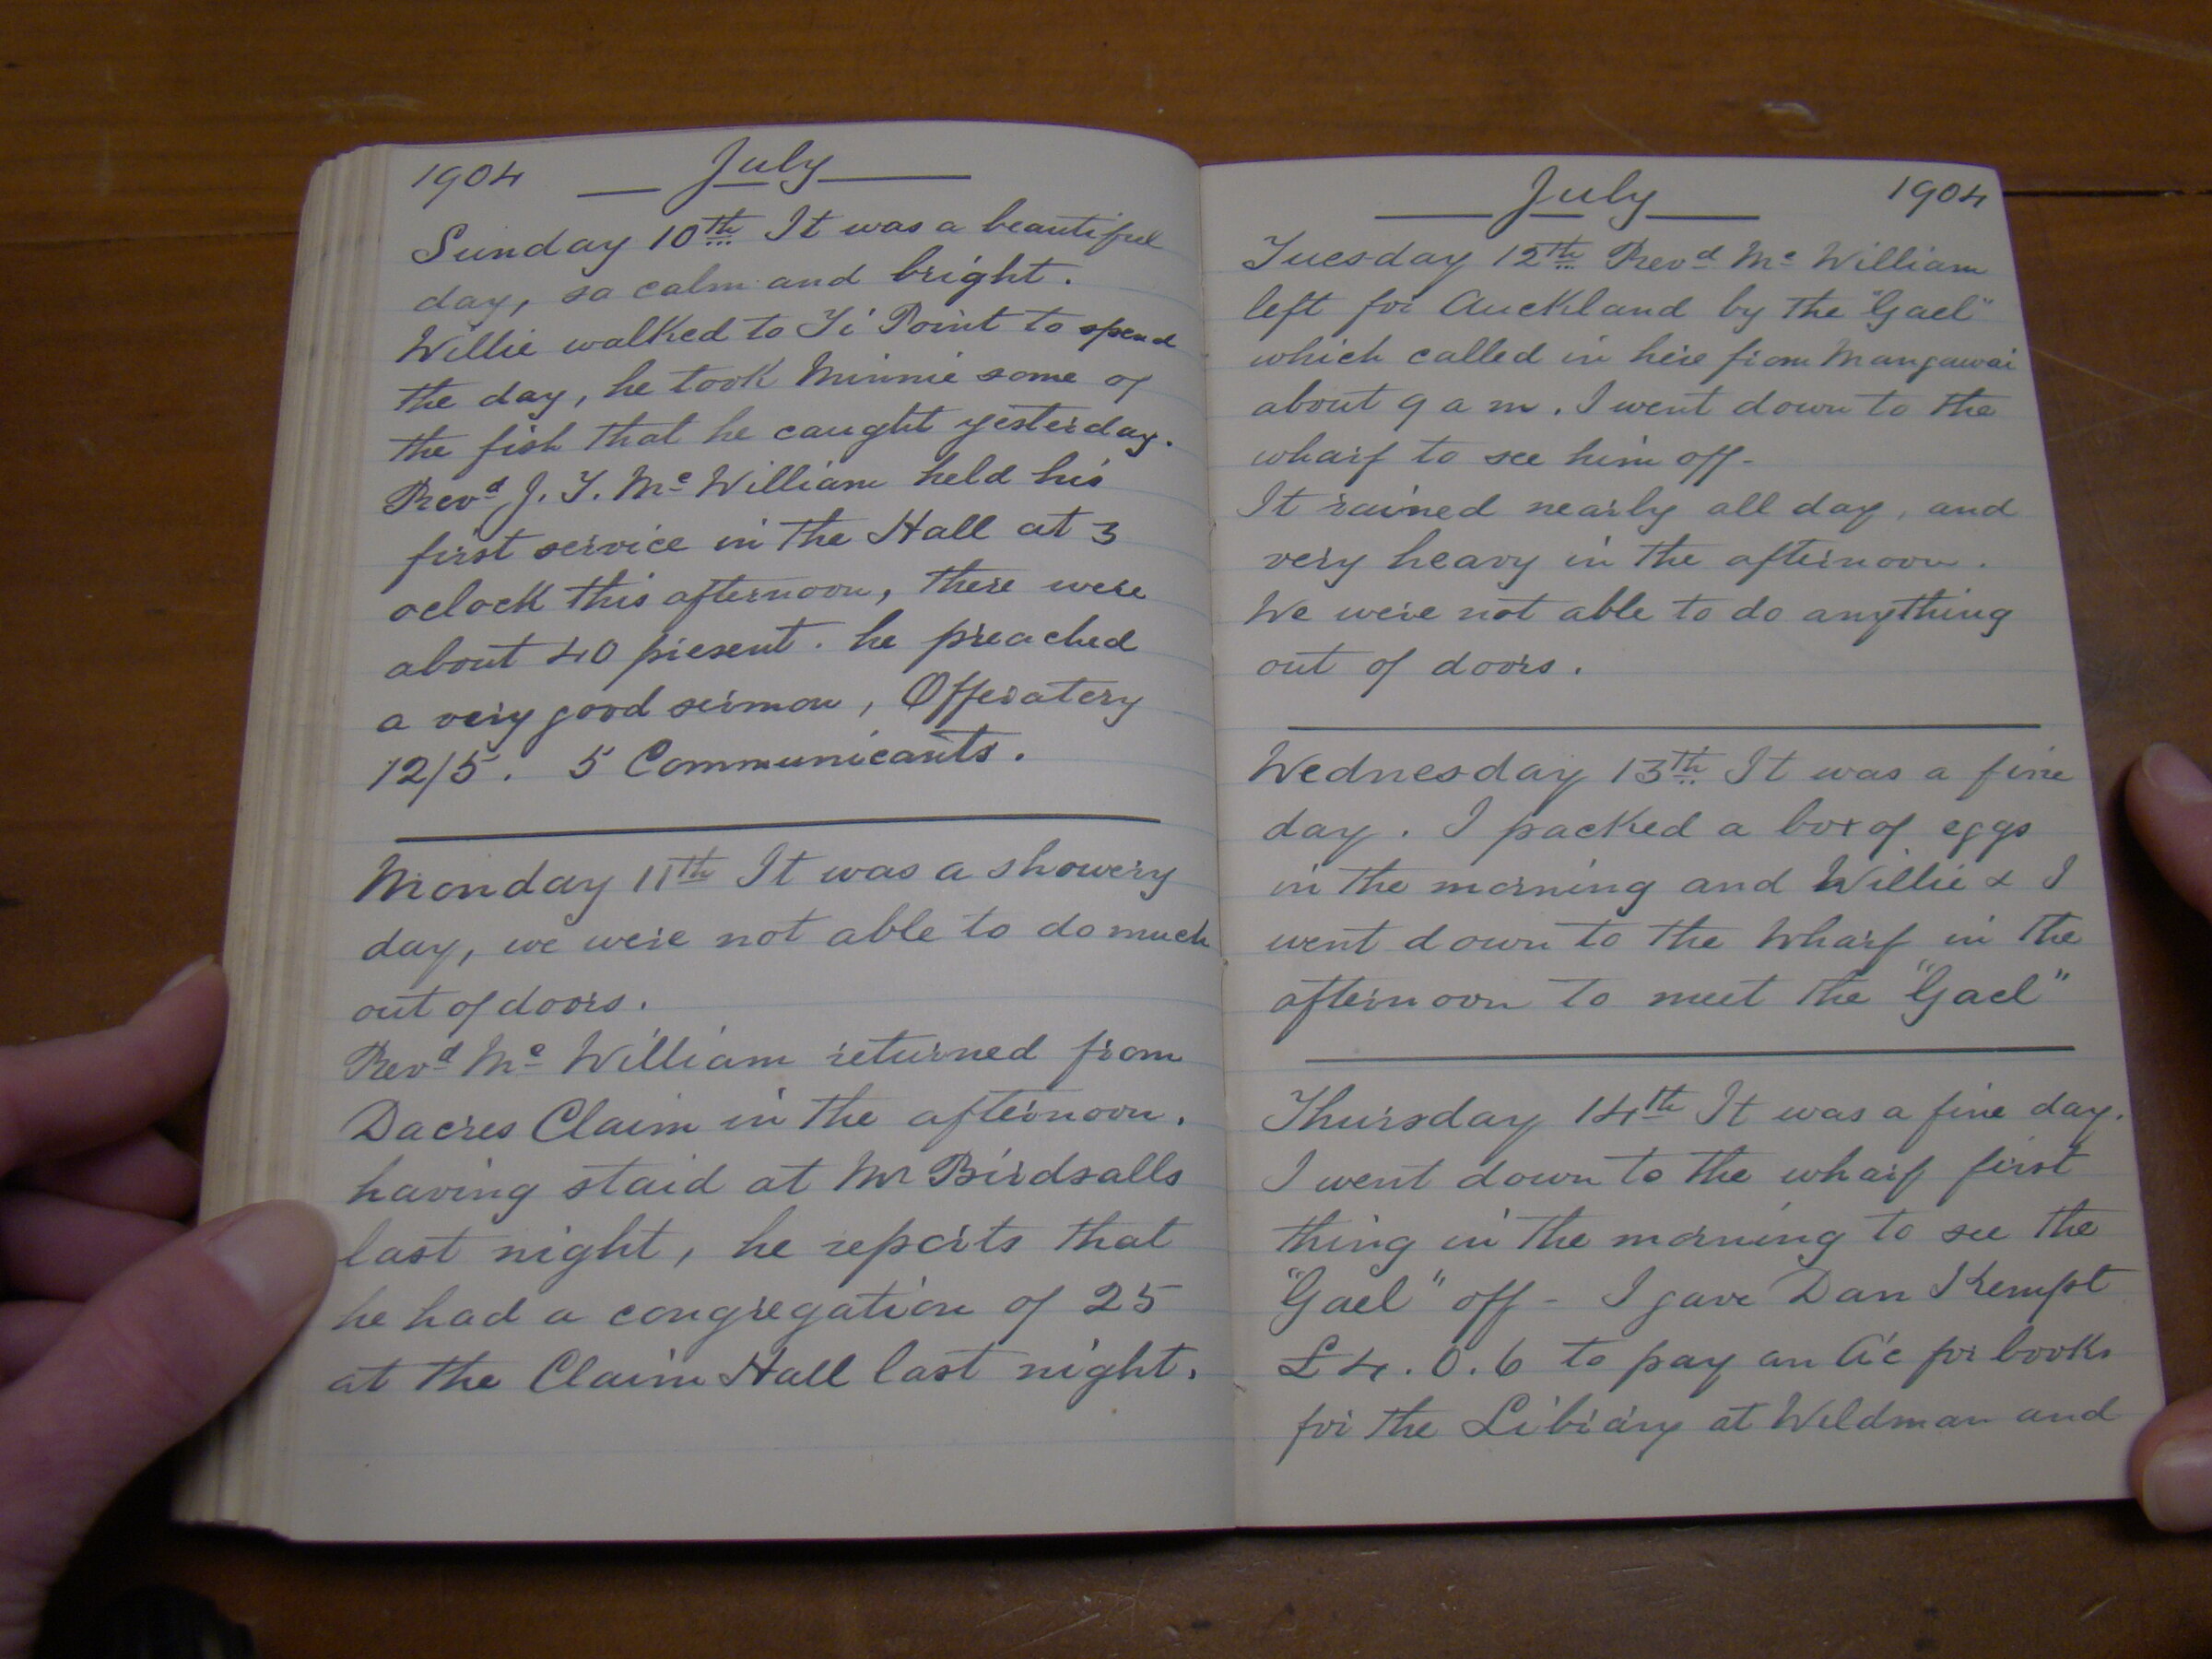 1904 July
Sunday 10th It was a beautiful
day, so calm and bright.
Willie walked to Ti Point to spend
the day, he took Minnie some of
the fish that he caught yesterday.
Revd J. T. Mc William held his
first service in the Hall at 3
oclock this afternoon, there were
about 40 present. he preached
a very good sermon, Offeratery
12/5. 5 Communicants.
Monday 11th It was a showery
day, we were not able to do much
out of doors.
Revd Mc William returned from
Dacres Claim in the afternoon.
having staid at Mr Birdsalls
last night, he reports that
he had a congregation of 25
at the Claim Hall last night.
July 1904
Tuesday 12th Revd Mc William
left for Auckland by the "Gael"
which called in here from Mangawai
about 9 a m. I went down to the
wharf to see him off-
It rained nearly all day, and
very heavy in the afternoon.
We were not able to do anything
out of doors.
Wednesday 13th It was a fine
day. I packed a box of eggs
in the morning and Willie & I
went down to the Wharf in the
afternoon to meet the "Gael"
Thursday 14th It was a fine day.
I went down to the wharf first
thing in the morning to see the
"Gael" off - I gave Dan Kempt
£4.0.6 to pay an a/c for books
for the Library at Wildman and